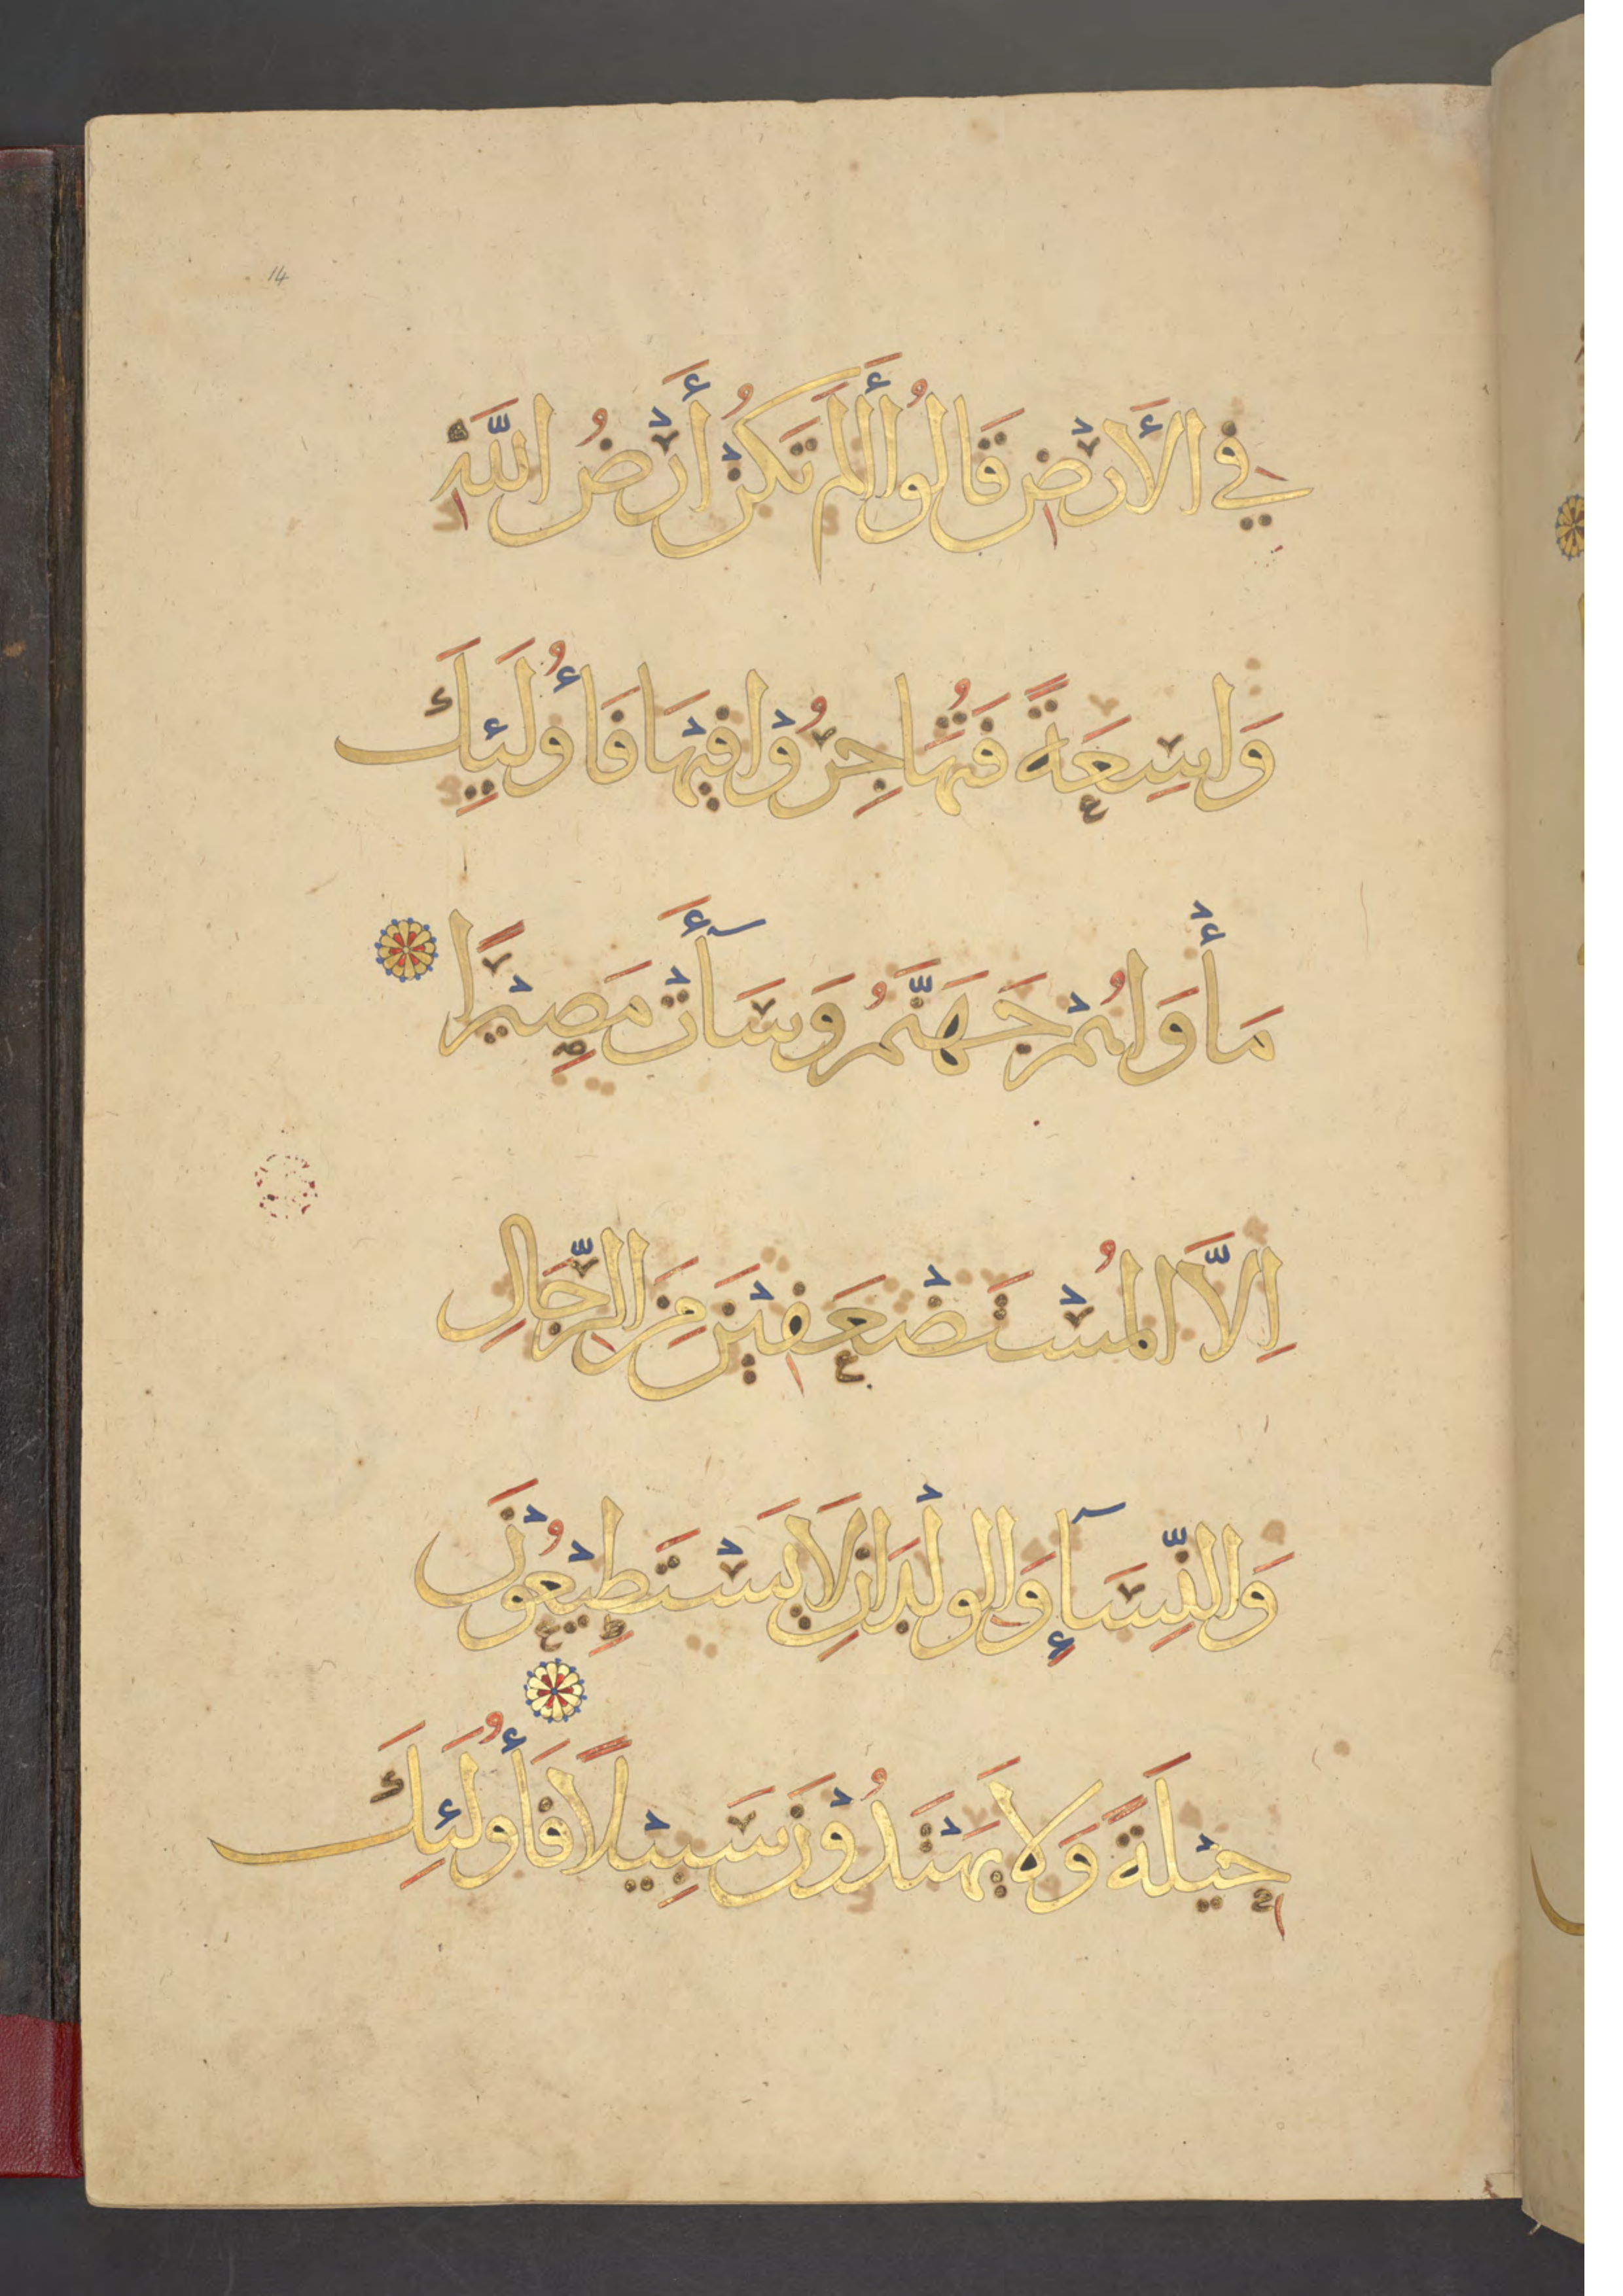 14
فِي الْأَرْضِ قَالُوا أَلَمْ تَكُنْ أَرْضُ اللَّهِ
وَاسِعَةً فَتُهَاجِرُوْا فِيْهَا فَأُولَئِكَ
مَأْوَاهُمْ جَهَنَّمُ وَسَآأَتْ مَصِيْرًا
اِلَّا الْمُسْتَضْعَفِيْنَ مِنَ الرِّجَالِ
وَالنِّسَآءِ وَالْوِلْدَانِ لَا يَسْتَطِيْعُوْنَ
حِيْلَةً وَلَا يَهْتَدُوْنَ سَبِيْلًا فَأُولَئِكَ